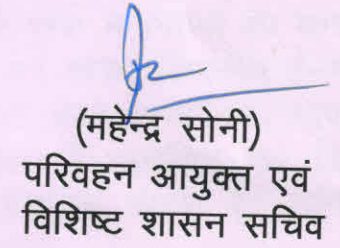 (महेन्द्र सोनी)
परिवहन आयुक्त एवं
विशिष्ट शासन सचिव